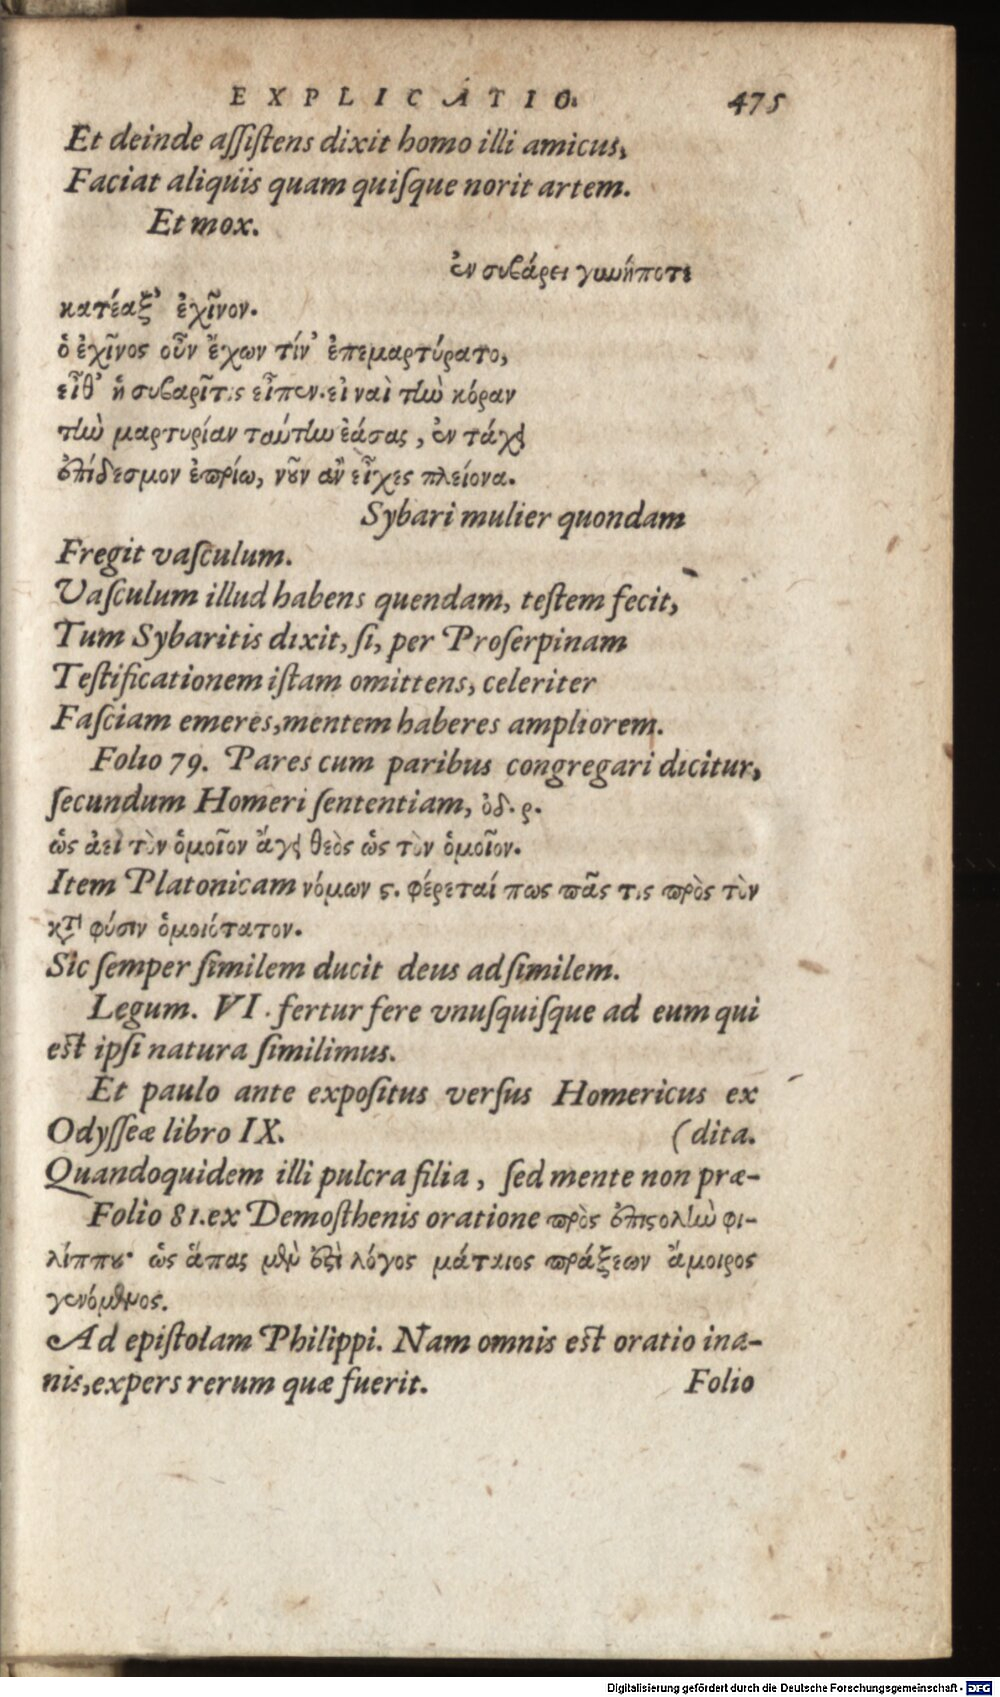 EXPLICATIO. 475
Et deinde aſſiſtens dixit homo illi amicus,
Faciat aliquis quam quiſque norit artem.
Et mox.
ἐν συβάρει γυνή ποτε
κατέαξ' ἐχῖνον.
ὁ ἐχῖνος οὖν ἔχων τίν' ἐπεμαρτύρατο,
εἶθ' ἡ συβαρῖτις εἶπεν. εἰ ναὶ τὴν κόραν
τὴν μαρτυρίαν ταύτην ἐάσας, ἐν τάχει
ἐπίδεσμον ἐπρίω, νοῦν ἂν εἶχες πλείονα.
Sybari mulier quondam
Fregit vaſculum.
Vaſculum illud habens quendam, teſtem fecit,
Tum Sybaritis dixit, ſi, per Proſerpinam
Teſtificationem iſtam omittens, celeriter
Faſciam emeres, mentem haberes ampliorem.
Folio 79. Pares cum paribus congregari dicitur,
ſecundum Homeri ſententiam, ὀδ. ρ.
ὡς ἀεὶ τὸν ὁμοῖον ἄγει θεὸς ὡς τὸν ὁμοῖον.
Item Platonicam νόμων ϛ. φέρεταί πως πᾶς τις πρὸς τὸν
κατὰ φύσιν ὁμοιότατον.
Sic ſemper ſimilem ducit deus ad ſimilem.
Legum. VI. fertur fere vnuſquiſque ad eum qui
eſt ipſi natura ſimilimus.
Et paulo ante expoſitus verſus Homericus ex
Odyſſeæ libro IX. (dita.
Quandoquidem illi pulcra filia, ſed mente non præ-
Folio 81. ex Demoſthenis oratione πρὸς ἐπιστολὴν φι-
λίππου· ὡς ἅπας μὲν ἐστὶ λόγος μάταιος πράξεων ἄμοιρος
γενόμενος.
Ad epiſtolam Philippi. Nam omnis eſt oratio ina-
nis, expers rerum quæ fuerit. Folio
Digitalisierung gefördert durch die Deutsche Forschungsgemeinschaft - DFG